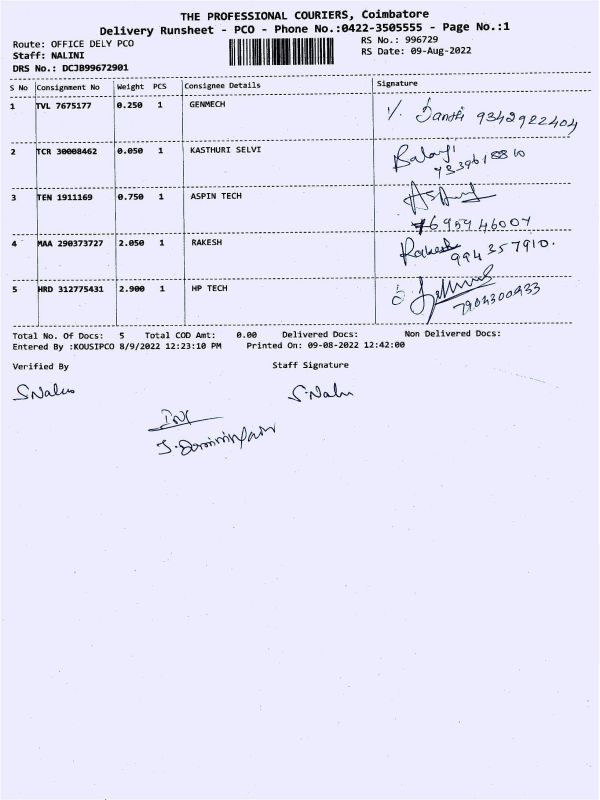 THE PROFESSIONAL COURIERS, Coimbatore
Delivery Runsheet - PCO - Phone No.:0422-3505555 - Page No.:1
Route: OFFICE DELY PCO RS No.: 996729
Staff: NALINI RS Date: 09-Aug-2022
DRS No.: DCJB99672901
S No Consignment No Weight PCS Consignee Details Signature
1 TVL 7675177 0.250 1 GENMECH 9342922404
2 TCR 30008462 0.050 1 KASTHURI SELVI Balaji
7339618810
3 TEN 1911169 0.750 1 ASPIN TECH
7695946007
4 MAA 290373727 2.050 1 RAKESH Rakesh
994357910.
5 HRD 312775431 2.900 1 HP TECH
7904300933
Total No. Of Docs: 5 Total COD Amt: 0.00 Delivered Docs: Non Delivered Docs:
Entered By :KOUSIPCO 8/9/2022 12:23:10 PM Printed On: 09-08-2022 12:42:00
Verified By Staff Signature